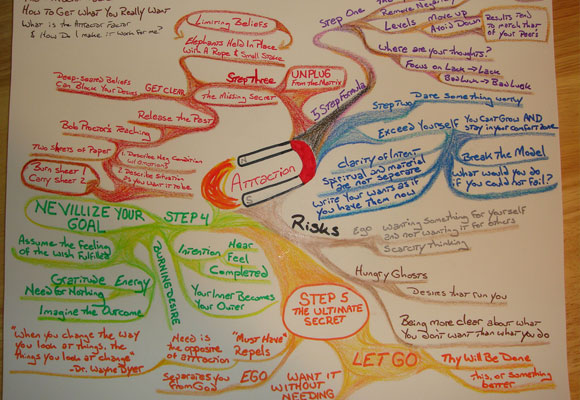 How To Get What You Really Want
What is the Attractor Factor
& How Do I make it work for me?
Limiring Beliefs
Elephants Held In Place
With A Rope & Small Stake
Step three
The Missing Secret
UNPLUG
From the Matrix
Deep-seated Beliefs
Can Block Your Desires
GET CLEAR
Release the Past
Bob Proctor's Teaching
Two Sheets of Paper
1. Describe Neg Condition
w/Emotions
2. Describe Situation
As you want it to be
Burn Sheet 1
Carry Sheet 2
Attraction
5 Step Formula
Step One
Remove Negativity
Levels
Move up
Avoid Down
Results tend
to match that
of your Peers
Where are your thoughts?
Focus on Lack → Lack
Bad Luck → Bad Luck
Step Two
Dare Something worthy
Exceed Yourself
You Can't Grow AND
stay in your comfort zone
Break the Model
What would you do
if you could not fail?
Clarity of Intent
Spiritual and material
are not seperate
Write Your wants as if
you have them now
Risks
Ego
Wanting something for yourself
and not wanting it for others
Scarcity Thinking
Hungry Ghosts
Desires that run you
Being more clear about what
You don't want than what you do
NEVILLIZE YOUR
GOAL
STEP 4
Assume the Feeling
of the Wish Fulfilled
Gratitude Energy
Need for Nothing
Imagine the Outcome
BURNING DESIRE
Intention
Hear
Feel
Completed
Your Inner Becomes
Your Outer
STEP 5
THE ULTIMATE
SECRET
"When you change the way
you look at things, the
things you look at change"
-Dr. Wayne Dyer
Need is
the opposite
of attraction
"Must Have"
Repels
Separates you
From God
EGO
WANT IT
WITHOUT
NEEDING
LET GO
Thy Will Be Done
this, or something
better